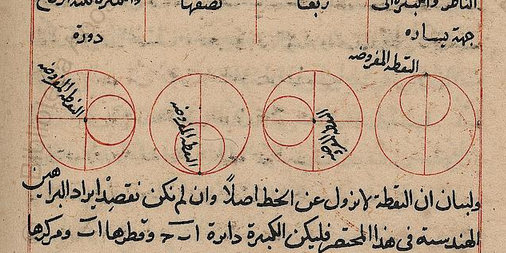 الناظر والحمرة الى ربعها نصفها
جهة يساره دورة
النقطة المفروضة
النقطة المفروضة
النقطة المفروضة
النقطة المفروضة
ولبيان ان النقطة لا تزول عن الخط اصلا وان لم نكن نقصد ايراد البراهين
الهندسية فى هذا المختصر فليكن الكبيرة دايرة ا ب ج وقطرها ا ب ومركزها